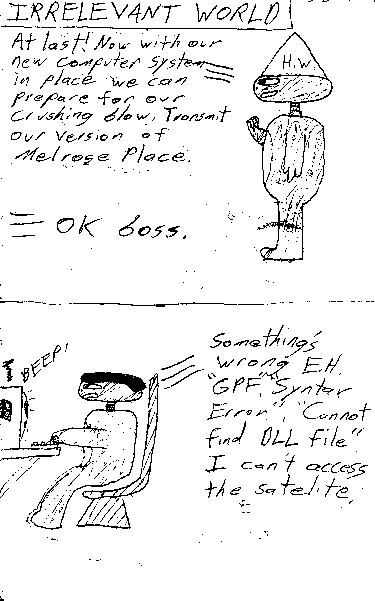 IRRELEVANT WORLD
At last! Now with our
new computer system
in place we can
prepare for our
crushing blow, Transmit
our version of
Melrose Place.
H.W.
OK boss.
BEEP!
Something's
wrong E.H.
"GPF," "Syntax
Error", "Cannot
find DLL file"
I can't access
the satelite.